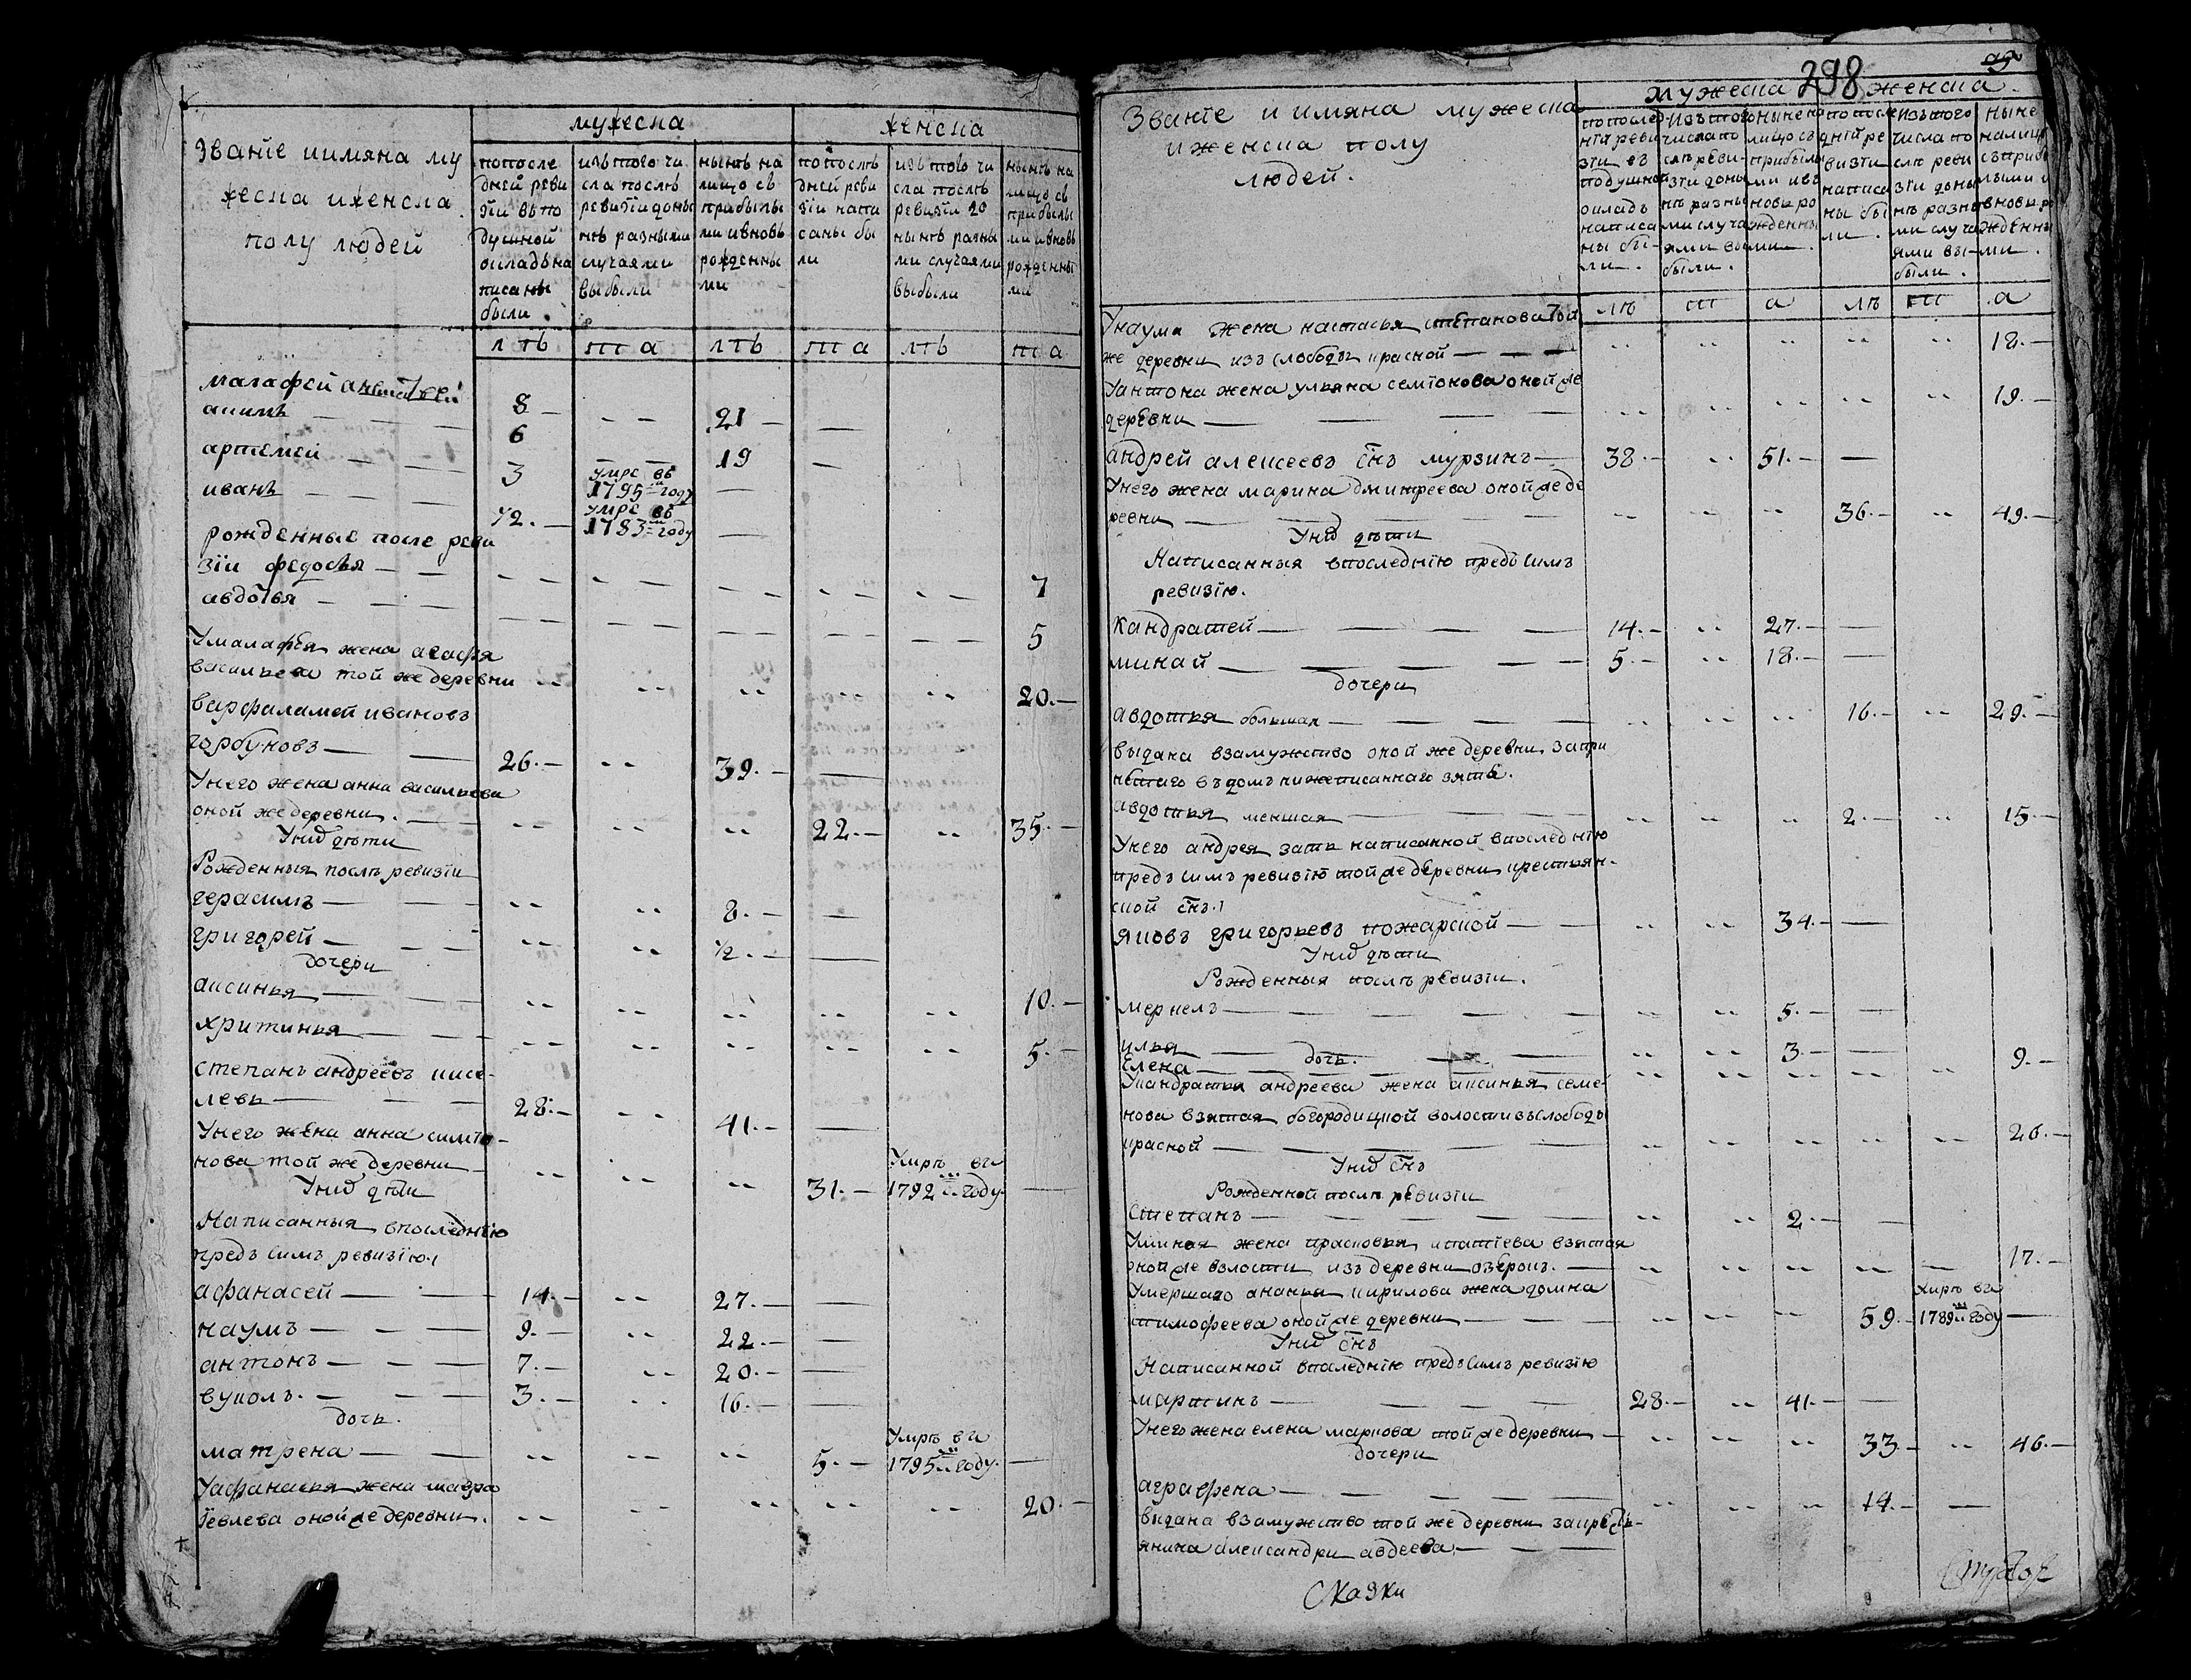 Званiе иимяна му
жеска иженска
полу людей
мужеска
женска
попосле
дней реви
зiи въпо
душной
окладъна
писаны
были
изътого чи
сла послѣ
ревизiидоны
нѣ разными
случаями
выбыли
нынѣ на
лицо съ
прибылы
ми ивновь
рожденны
ми
попослѣ
дней реви
зiи напи
саны бы
ли
изътого чи
сла послѣ
ревизiи до
нынѣ разны
ми случаями
выбыли
нынѣ на
лицо съ
прибылы
ми ивновь
рожденны
ми
лѣ та лѣ та лѣ та
малафей
8 21
акимъ
6 19
артемей
3 умре въ 1795=м году
иванъ
1/2. умре въ 1783=м году
рожденные после реви
зiи федосья
7
авдотья
5
Умалафѣя жена агафя
васильева той же деревни 20.
варфаламей ивановъ
горбуновъ 26. 39.
Унего жена анна васильева
оной жедеревни. 22. 35.
Унихъ дѣти
Рожденныя послѣ ревизiи
герасимъ 8.
григорей 1/2.
дочери
аксинья 10.
хритинья 5.
степанъ андреевъ кисе-
левъ 28. 41.
Унего жена анна симiо-
нова той же деревни 31. Умрѣ въ 1792=м году.
Унихъ дѣти
Написанныя впоследнiю
предъ симъ ревизiю.
афанасей 14. 27.
наумъ 9. 22.
антонъ 7. 20.
вуколъ. 3. 16.
дочь.
матрена 5. Умрѣ въ 1795=м году.
Уафанасья жена мавра
iевлева оной же деревни. 20.
298
Званiе и имяна мужеска
иженска полу
людей.
мужеска женска.
попослед
нiй реви
зiи въ
подушной
окладъ
написа
ны бы-
ли.
изътого
числа по
слѣ реви-
зiи доны
нѣ разны
ми случа
ями вы
были.
ныне на
лицо съ
прибылы
ми ивъ
новь ро
жденны
ми.
попосле
днiй ре
визiи
написа
ны бы
ли.
изътого
числа по
слѣ реви
зiи доны
нѣ разны
ми случа
ями вы-
были.
ныне
налицо
съприбы
лыми и
вновь ро
жденны
ми.
лѣ т а лѣ т а
Унаума жена настасья степанова той
же деревни изъ слободы красной 18.
Уантона жена ульяна семiонова оной же
деревни 19.
андрей алексеевъ с͠нъ мурзинъ 38. 51.
Унего жена марина дмитреева оной же де
ревни 36. 49.
Унихъ дѣти
Написанныя впоследнiю предъ симъ
ревизiю.
Кандратей 14. 27.
минай 5. 18.
дочери
авдотья большая 16. 29.
выдана взамужство оной же деревни запри
нетаго въдомъ нижеписаннаго зятя.
авдотья меншая 2. 15.
Унего андрея зять написанной впоследнiю
предъ симъ ревизiю той же деревни крестьян-
ской с͠нъ.
яковъ григорьевъ пожарской 34.
Унихъ дѣти
Рожденныя послѣ ревизiи.
меркелъ 5.
илья 3.
дочь.
Елена 9.
Укандратья андреева жена аксинья семе-
нова взятая богородицкой волости въслободы
красной 26.
Унихъ с͠нъ
Рожденной послѣ ревизiи
Степанъ 2.
Уминая жена прасковья ипатiева взятая
оной же волости изъ деревни озерокъ. 17.
Умершаго ананья кирилова жена домна
тимофеева оной же деревни 59. умрѣ въ 1789=м году
Унихъ с͠нъ
Написанной впаледнiю предъ симъ ревизiю
мартинъ 28. 41.
Унего жена елена маркова той же деревни 33. 46.
дочери
аграфена 14.
выдана взамужство той же деревни закресть-
янина александры авдеева.
Сказки